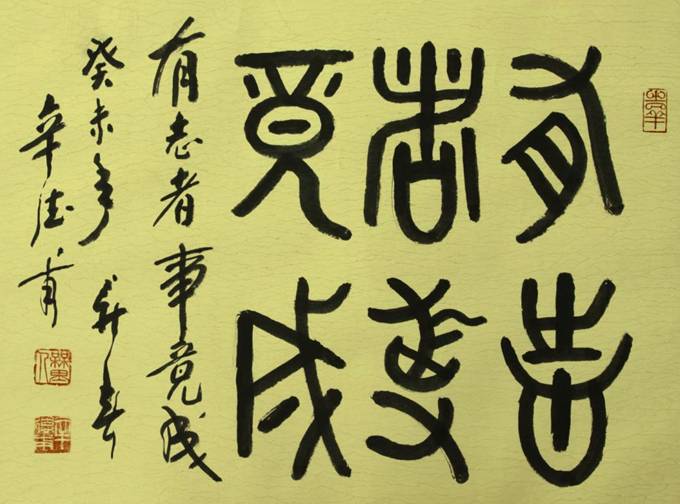 有志
者事
竟成
有志者事竟成
癸未年新春
辛德甫